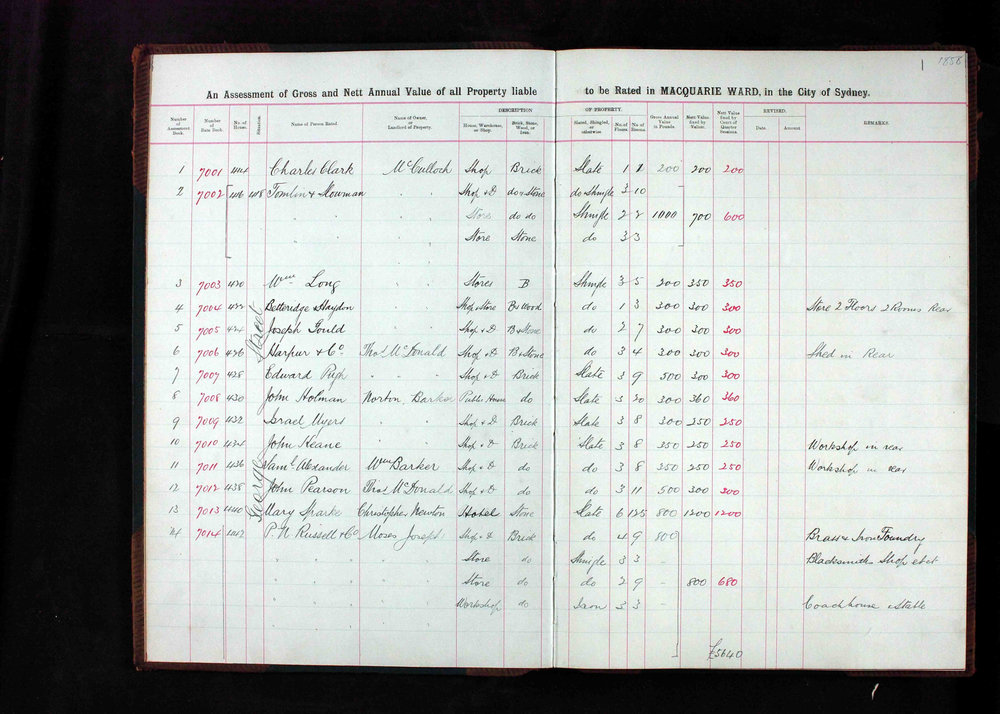 1858
An Assessment of Gross and Nett Annual Value of all Property liable to be Rated in MACQUARIE WARD, in the City of Sydney.
Number of Assessment Book. Number of Rate Book. No. of House. Situation. Name of Person Rated. Name of Owner, or Landlord of Property. DESCRIPTION OF PROPERTY. House, Warehouse, or Shop. Brick, Stone, Wood, or Iron. Slated, Shingled, or otherwise No. of Floors. No. of Rooms. Gross Annual Value in Pounds. Nett Value fixed by Valuer. Nett Value fixed by Court of Quarter Sessions. REVISED. Date. Amount. REMARKS.
George Street
1 7001 Charles Clark McCulloch Shop Brick Slate 1 1 200 200 200
2 7002 416 418 Tomlin & Mowman " " Shop & D do & Stone do Shingle 3 10
" " Store do do Shingle 2 2 1000 700 600
" Store Stone do 3 3
3 7003 420 Wm Long Stores B Shingle 3 5 200 350 350
4 7004 422 Betteridge & Haydon Shop & Store B & Wood do 1 3 300 300 300 Store 2 Floors 2 Rooms Rear
5 7005 424 Joseph Gould " " Shop & D B & Stone do 2 7 300 300 300
6 7006 426 Harpur & Co Thos McDonald Shop & D B & Stone do 3 4 300 300 300 Shed in Rear
7 7007 428 Edward Pugh " " Shop & D Brick Slate 3 9 500 300 300
8 7008 430 John Holman Norton Barker Public House do Slate 3 20 300 360 360
9 7009 432 Israel Myers " " Shop & D Brick Slate 3 8 300 250 250
10 7010 434 John Keane " " Shop & D Brick Slate 3 8 250 250 250 Workshop in rear
11 7011 436 Saml Alexander Wm Barker Shop & D do do 3 8 250 250 250 Workshop in rear
12 7012 438 John Pearson Thos McDonald Shop & D do do 3 11 500 300 300
13 7013 440 Mary Sparke Christopher Newton Hotel Stone Slate 6 125 800 1200 1200
14 7014 442 P. N. Russell & Co Moses Joseph Shop & D Brick do 4 9 800 Brass & Iron Foundry
" " Store do Shingle 3 3 - Blacksmith Shop etct
" " Store do do 2 9 - 800 680
" " Workshop do Iron 3 3 - Coach house & Stable
£5640